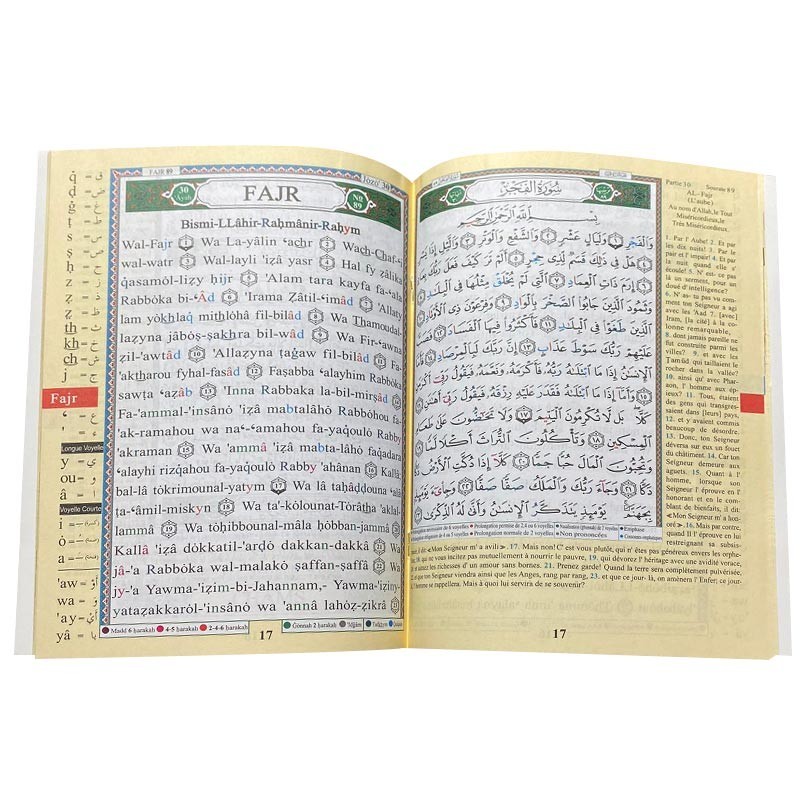 FAJR 89
Jozū' 30
30
Ayah
FAJR
No
89
Bismi-LLâhir-Raḥmânir-Raḥym
Wal-Fajr ① Wa La-yâlin ʻachr ② Wach-Chafʻ-
wal-watr ③ Wal-layli 'iẓâ yasr ④ Hal fy ẓâlika
qasamól-liẓy ḥijr ⑤ 'Alam tara kayfa faʻala
Rabbóka bi-ʻÂd ⑥ 'Irama Zâtil-ʻimâd ⑦ 'Allaty
lam yókhlaq mithlóhâ fil-bilâd ⑧ Wa Thamoudal-
laẓyna jâbóṣ-ṣakhra bil-wâd ⑨ Wa Fir-ʻawna
ẓil-'awtâd ⑩ 'Allaẓyna ṭaġaw fil-bilâd ⑪ Fa-
'aktharou fyhal-fasâd ⑫ Faṣabba ʻalayhim Rabbóka
sawṭa ʻaẓâb ⑬ 'Inna Rabbaka la-bil-mirṣâd ⑭
Fa-'ammal-'insânó 'iẓâ mabtalâhó Rabbóhou fa-
'ak-ramahou wa naʻ-ʻamahou fa-yaqóulo Rabby
'akraman ⑮ Wa 'ammâ 'iẓâ mabta-lâhó faqadara
ʻalayhi rizqahou fa-yaqóulo Rabby 'ahânan ⑯ Kallâ
bal-lâ tókrimounal-yatym ⑰ Wa lâ taḥâḍḍouna ʻalâ
ṭa-ʻâmil-miskyn ⑱ Wa ta'-kólounat-Tórâtha 'aklal-
lammâ ⑲ Wa tóḥibbounal-mâla ḥóbban-jammâ ⑳
Kallâ 'iẓâ dókkatil-'arḍó dakkan-dakkâ ㉑ Wa
jâ-'a Rabbóka wal-malakó ṣaffan-ṣaffâ ㉒ Wa
jy-'a Yawma-'iẓim-bi-Jahannam,- Yawma-'iẓiny-
yataẓakkaról-'insânó wa 'annâ lahóẓ-ẓikrâ ㉓
Madd 6 ḥarakah 4-5 ḥarakah 2-4-6 ḥarakah Ġonnah 2 ḥarakah 'Idġâm Tafkhym
17
Fajr
Longue Voyelle
y = ـي
ou = ـو
â = ـا
Voyelle Courte
i
ó
a
'aw = أَوْ
wa = وَ
'ay = أَيْ
yâ = يا
سُورَةُ الفَجْرِ
بِسْمِ اللَّهِ الرَّحْمَٰنِ الرَّحِيمِ
وَالْفَجْرِ ١ وَلَيَالٍ عَشْرٍ ٢ وَالشَّفْعِ وَالْوَتْرِ ٣ وَاللَّيْلِ إِذَا يَسْرِ
٤ هَلْ فِي ذَٰلِكَ قَسَمٌ لِذِي حِجْرٍ ٥ أَلَمْ تَرَ كَيْفَ فَعَلَ رَبُّكَ بِعَادٍ
٦ إِرَمَ ذَاتِ الْعِمَادِ ٧ الَّتِي لَمْ يُخْلَقْ مِثْلُهَا فِي الْبِلَادِ ٨
وَثَمُودَ الَّذِينَ جَابُوا الصَّخْرَ بِالْوَادِ ٩ وَفِرْعَوْنَ ذِي الْأَوْتَادِ ١٠
الَّذِينَ طَغَوْا فِي الْبِلَادِ ١١ فَأَكْثَرُوا فِيهَا الْفَسَادَ ١٢ فَصَبَّ
عَلَيْهِمْ رَبُّكَ سَوْطَ عَذَابٍ ١٣ إِنَّ رَبَّكَ لَبِالْمِرْصَادِ ١٤ فَأَمَّا
الْإِنْسَانُ إِذَا مَا ابْتَلَاهُ رَبُّهُ فَأَكْرَمَهُ وَنَعَّمَهُ فَيَقُولُ رَبِّي أَكْرَمَنِ
١٥ وَأَمَّا إِذَا مَا ابْتَلَاهُ فَقَدَرَ عَلَيْهِ رِزْقَهُ فَيَقُولُ رَبِّي أَهَانَنِ ١٦
كَلَّا بَلْ لَا تُكْرِمُونَ الْيَتِيمَ ١٧ وَلَا تَحَاضُّونَ عَلَىٰ طَعَامِ
الْمِسْكِينِ ١٨ وَتَأْكُلُونَ التُّرَاثَ أَكْلًا لَمًّا ١٩
وَتُحِبُّونَ الْمَالَ حُبًّا جَمًّا ٢٠ كَلَّا إِذَا دُكَّتِ الْأَرْضُ دَكًّا
دَكًّا ٢١ وَجَاءَ رَبُّكَ وَالْمَلَكُ صَفًّا صَفًّا ٢٢ وَجِيءَ يَوْمَئِذٍ
بِجَهَنَّمَ يَوْمَئِذٍ يَتَذَكَّرُ الْإِنْسَانُ وَأَنَّىٰ لَهُ الذِّكْرَىٰ ٢٣
Partie 30 Sourate 89
AL- Fajr
(L'aube)
Au nom d'Allah, le Tout
Miséricordieux, le
Très Miséricordieux.
1. Par l' Aube! 2. Et par
les dix nuits! 3. Par le
pair et l' impair! 4. Et par
la nuit, quand elle s'
écoule! 5. N' est- ce pas
là un serment, pour un
doué d' intelligence?
6. N' as- tu pas vu com-
ment ton Seigneur a agi
avec les 'Aad 7. [avec]
Iram, [la cité] à la co-
lonne remarquable,
8. dont jamais pareille ne
fut construite parmi les
villes? 9. et avec les
Ṯamūd qui taillaient le
rocher dans la vallée?
10. ainsi qu' avec Phar-
aon, l' homme aux épi-
eux? 11. Tous, étaient
des gens qui transgres-
saient dans [leurs] pays,
12. et y avaient commis
beaucoup de désordre.
13. Donc, ton Seigneur
déversa sur eux un fouet
du châtiment. 14. Car ton
Seigneur demeure aux
aguets. 15. Quant à l'
homme, lorsque son
Seigneur l' éprouve en l'
honorant et en le comb-
lant de bienfaits, il dit:
≪Mon Seigneur m' a hon-
oré≫. 16. Mais par contre,
quand Il l' éprouve en lui
restreignant sa subsis-
tance, il dit: ≪Mon Seigneur m' a avili≫. 17. Mais non! C' est vous plutôt, qui n' êtes pas généreux envers les orphe-
lins, 18. qui ne vous incitez pas mutuellement à nourrir le pauvre, 19. qui dévorez l' héritage avec une avidité vorace,
et aimez les richesses d' un amour sans bornes. 21. Prenez garde! Quand la terre sera complètement pulvérisée,
et que ton Seigneur viendra ainsi que les Anges, rang par rang, 23. et que ce jour- là, on amènera l' Enfer; ce jour-
l' homme se rappellera. Mais à quoi lui servira de se souvenir?
17